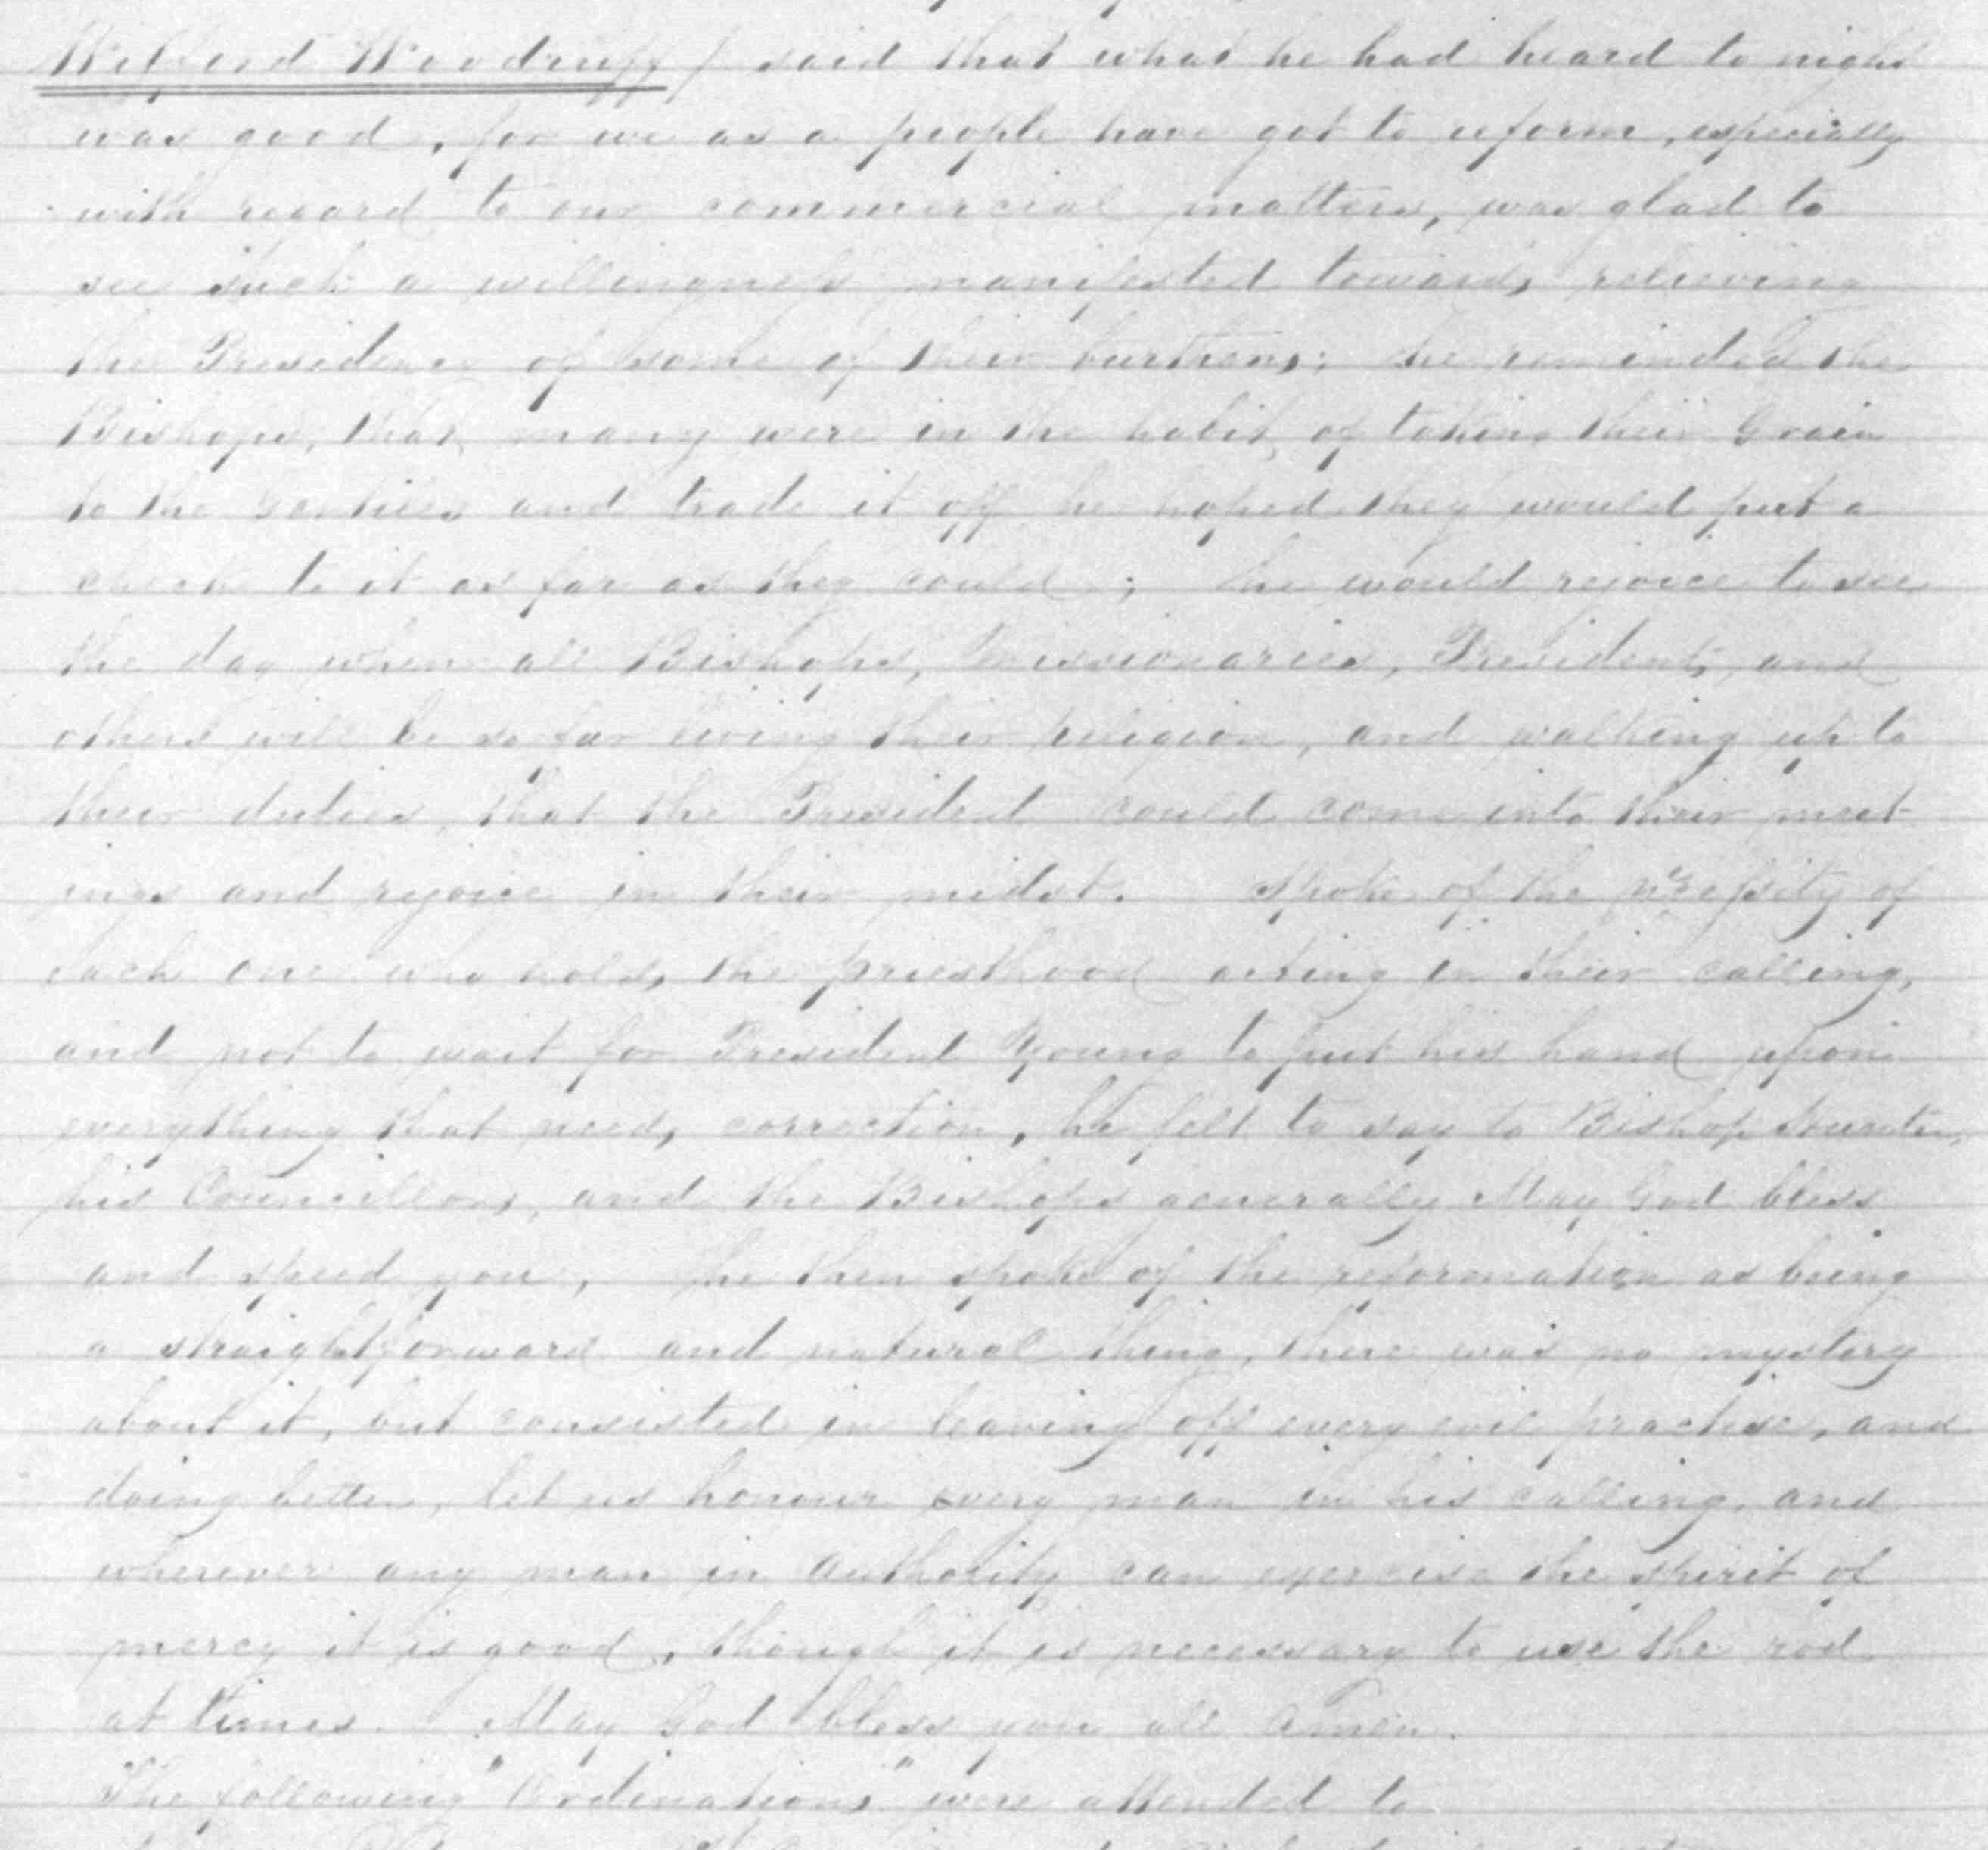 Wilford Woodruff / said that what he had heard to night
was good, for we as a people have got to reform, especially
with regard to our commercial matters, was glad to
see such a willingness manifested towards relieving
the Presidency of some of their burthens; he reminded the
Bishops, that many were in the habit of taking their Grain
to the Gentiles and trade it off he hoped they would put a
check to it as far as they could; he would rejoice to see
the day when all Bishops, Missionaries, Presidents, and
others will be so far living their religion, and walking up to
their duties, that the President could come into their meet
ings and rejoice in their midst. Spoke of the necessity of
each one who holds the priesthood acting in their calling,
and not to wait for President Young to put his hand upon
everything that needs correction, he felt to say to Bishop Hunter,
his Councillors, and the Bishops generally May God bless
and speed you, he then spoke of the reformation as being
a straightforward and natural thing, there was no mystery
about it, but consisted in leaving off every evil practise, and
doing better, let us honour every man in his calling, and
wherever any man in authority can exercise the spirit of
mercy it is good, though it is necessary to use the rod
at times. May God bless you all Amen.
The following "Ordinations" were attended to